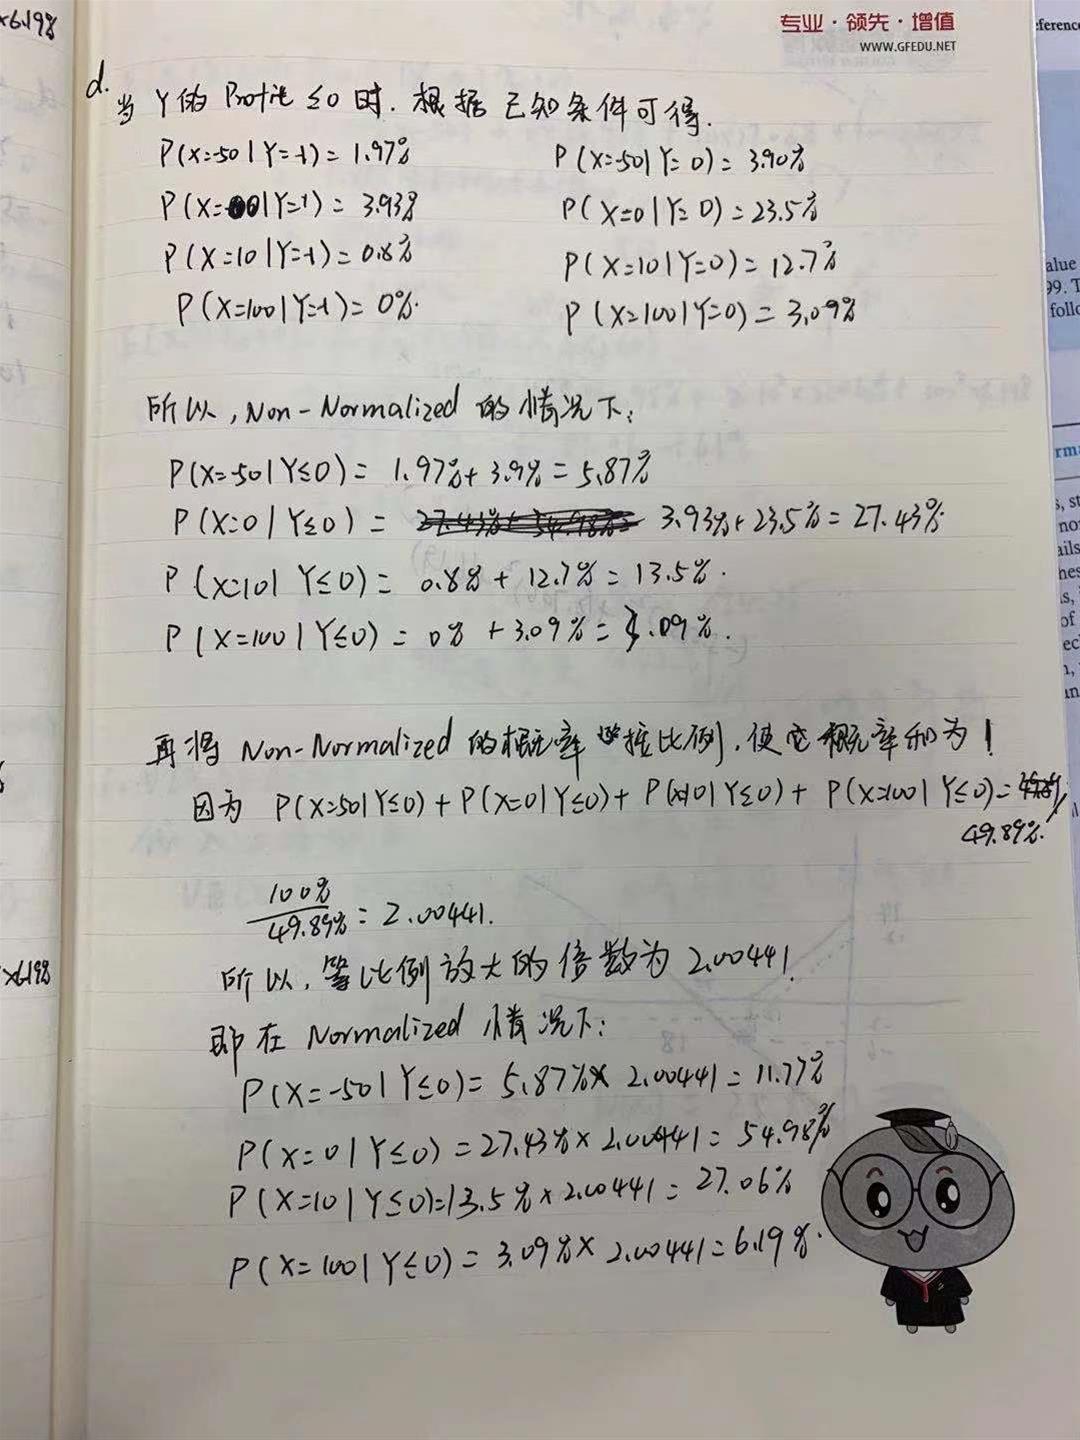 ×6.19%
专业·领先·增值
WWW.GFEDU.NET
d.
当 Y的 Profit ≤0 时. 根据已知条件可得.
P(X=-50|Y=-1)=1.97%
P(X=-50|Y=0)=3.90%
P(X=0|Y=-1)=3.93%
P(X=0|Y=0)=23.5%
P(X=10|Y=-1)=0.8%
P(X=10|Y=0)=12.7%
P(X=100|Y=-1)=0%.
P(X=100|Y=0)=3.09%
所以, Non-Normalized 的情况下:
P(X=-50|Y≤0)=1.97%+3.9%=5.87%
P(X=0|Y≤0)= 3.93%+23.5%=27.43%
P(X=10|Y≤0)= 0.8%+12.7%=13.5%.
P(X=100|Y≤0)=0%+3.09%=3.09%.
再将 Non-Normalized 的概率 按比例, 使它概率和为1
因为 P(X=-50|Y≤0)+P(X=0|Y≤0)+P(X=10|Y≤0)+P(X=100|Y≤0)=
49.89%.
100%/49.89%=2.00441.
所以, 等比例放大的倍数为 2.00441.
×6.19%
即在 Normalized 情况下:
P(X=-50|Y≤0)=5.87%×2.00441=11.77%
P(X=0|Y≤0)=27.43%×2.00441=54.98%
P(X=10|Y≤0)=13.5%×2.00441=27.06%
P(X=100|Y≤0)=3.09%×2.00441=6.19%.